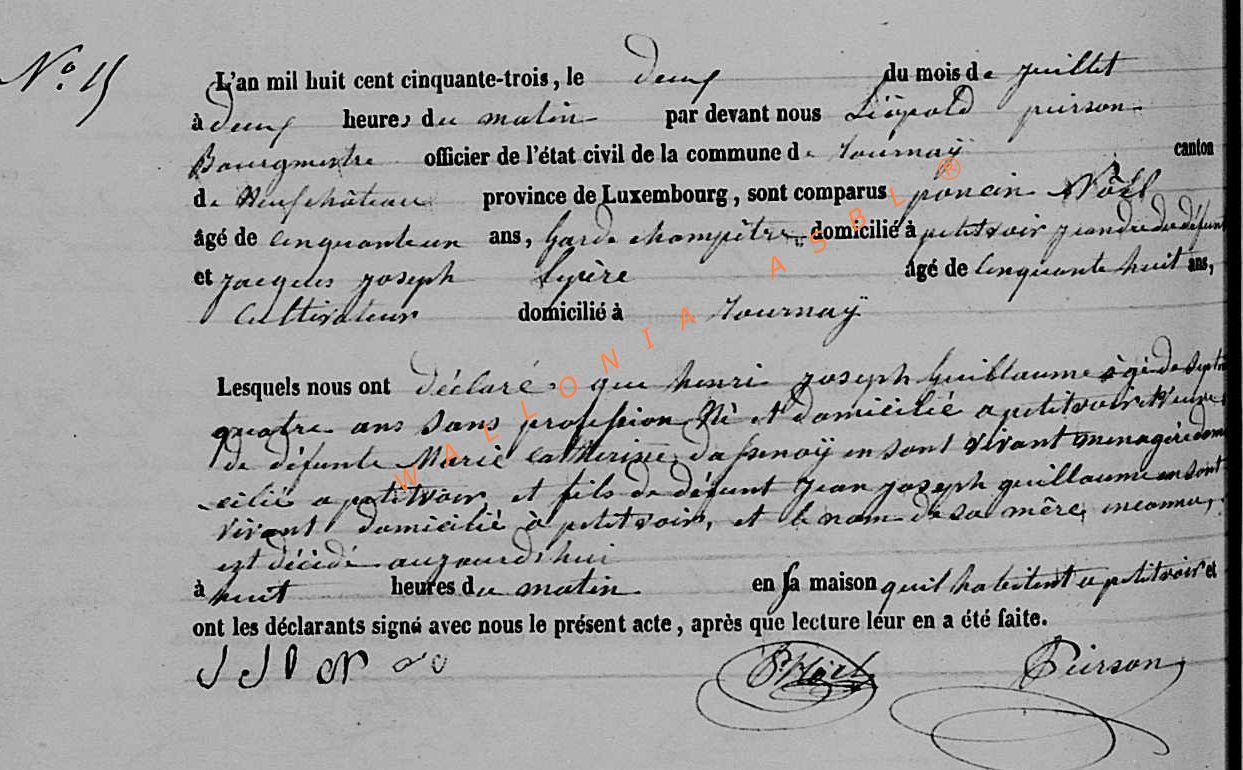 N° 15
L'an mil huit cent cinquante-trois, le deux du mois de juillet
à deux heures du matin par devant nous Léopold pierson
Bourgmestre officier de l'état civil de la commune de Tournaÿ canton
de Neufchâteau province de Luxembourg, sont comparus poncin Nöel
âgé de Cinquanteun ans, Garde champêtre domicilié à petitvoir gendre du défunt
et jacques joseph âgé de Cinquante huit ans,
Cultivateur domicilié à Tournaÿ
Lesquels nous ont déclaré que henri joseph Guillaume âgé de septante
quatre ans sans profession Né et domicilié a petitvoir
de défunte Marie Catherine dassenoÿ en sont vivant menagère domi
ciliée a petitvoir et fils de défunt jean joseph guillaume en sont
vivant domicilié à petitvoir, et le nom de sa mère inconnu,
est décédé aujourdhui
à huit heures du matin en sa maison quil habitent a petitvoir et
ont les déclarants signé avec nous le présent acte, après que lecture leur en a été faite.
P Nöel Pierson
WALLONIA ASBL ®